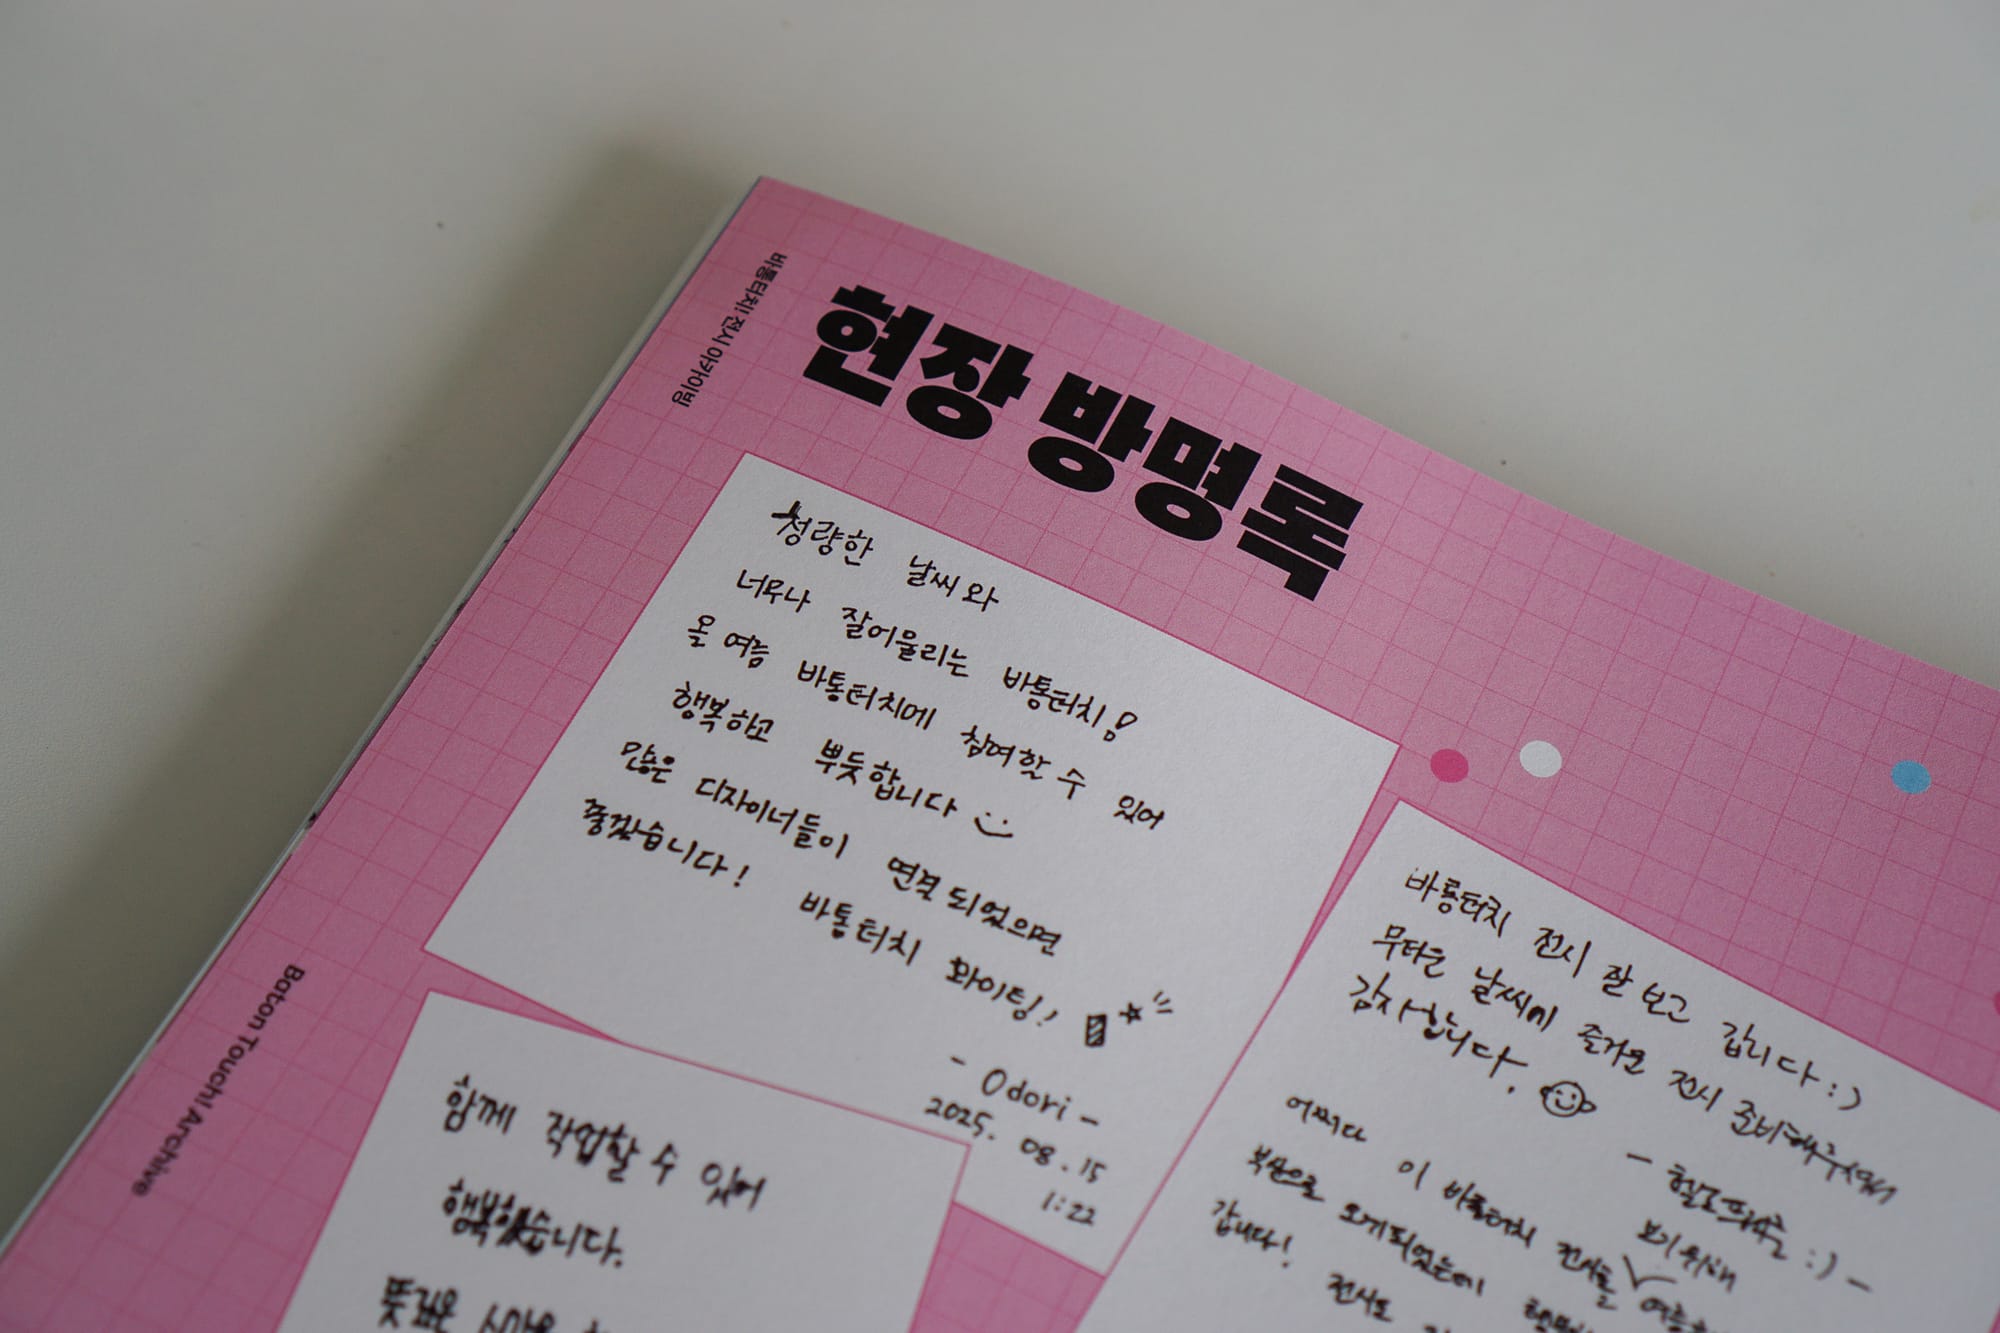 바통터치! 전시 아카이빙
현장 방명록
청량한 날씨와
너무나 잘어울리는 바통터치!
올 여름 바통터치에 참여할 수 있어
행복하고 뿌듯합니다
많은 디자이너들이 연결되었으면
좋겠습니다! 바통터치 화이팅!
- Odori -
2025. 08. 15
1:22
바통터치 전시 잘 보고 갑니다 :)
무더운 날씨에 즐거운 전시 준비해주셔서
감사합니다.
:) -
어쩌다 이 바통터치 전시를 보기위해
부산으로 오게되었는데
갑니다! 전시도
함께 작업할 수 있어
행복했습니다.
뜨거운
Baton Touch! Archive